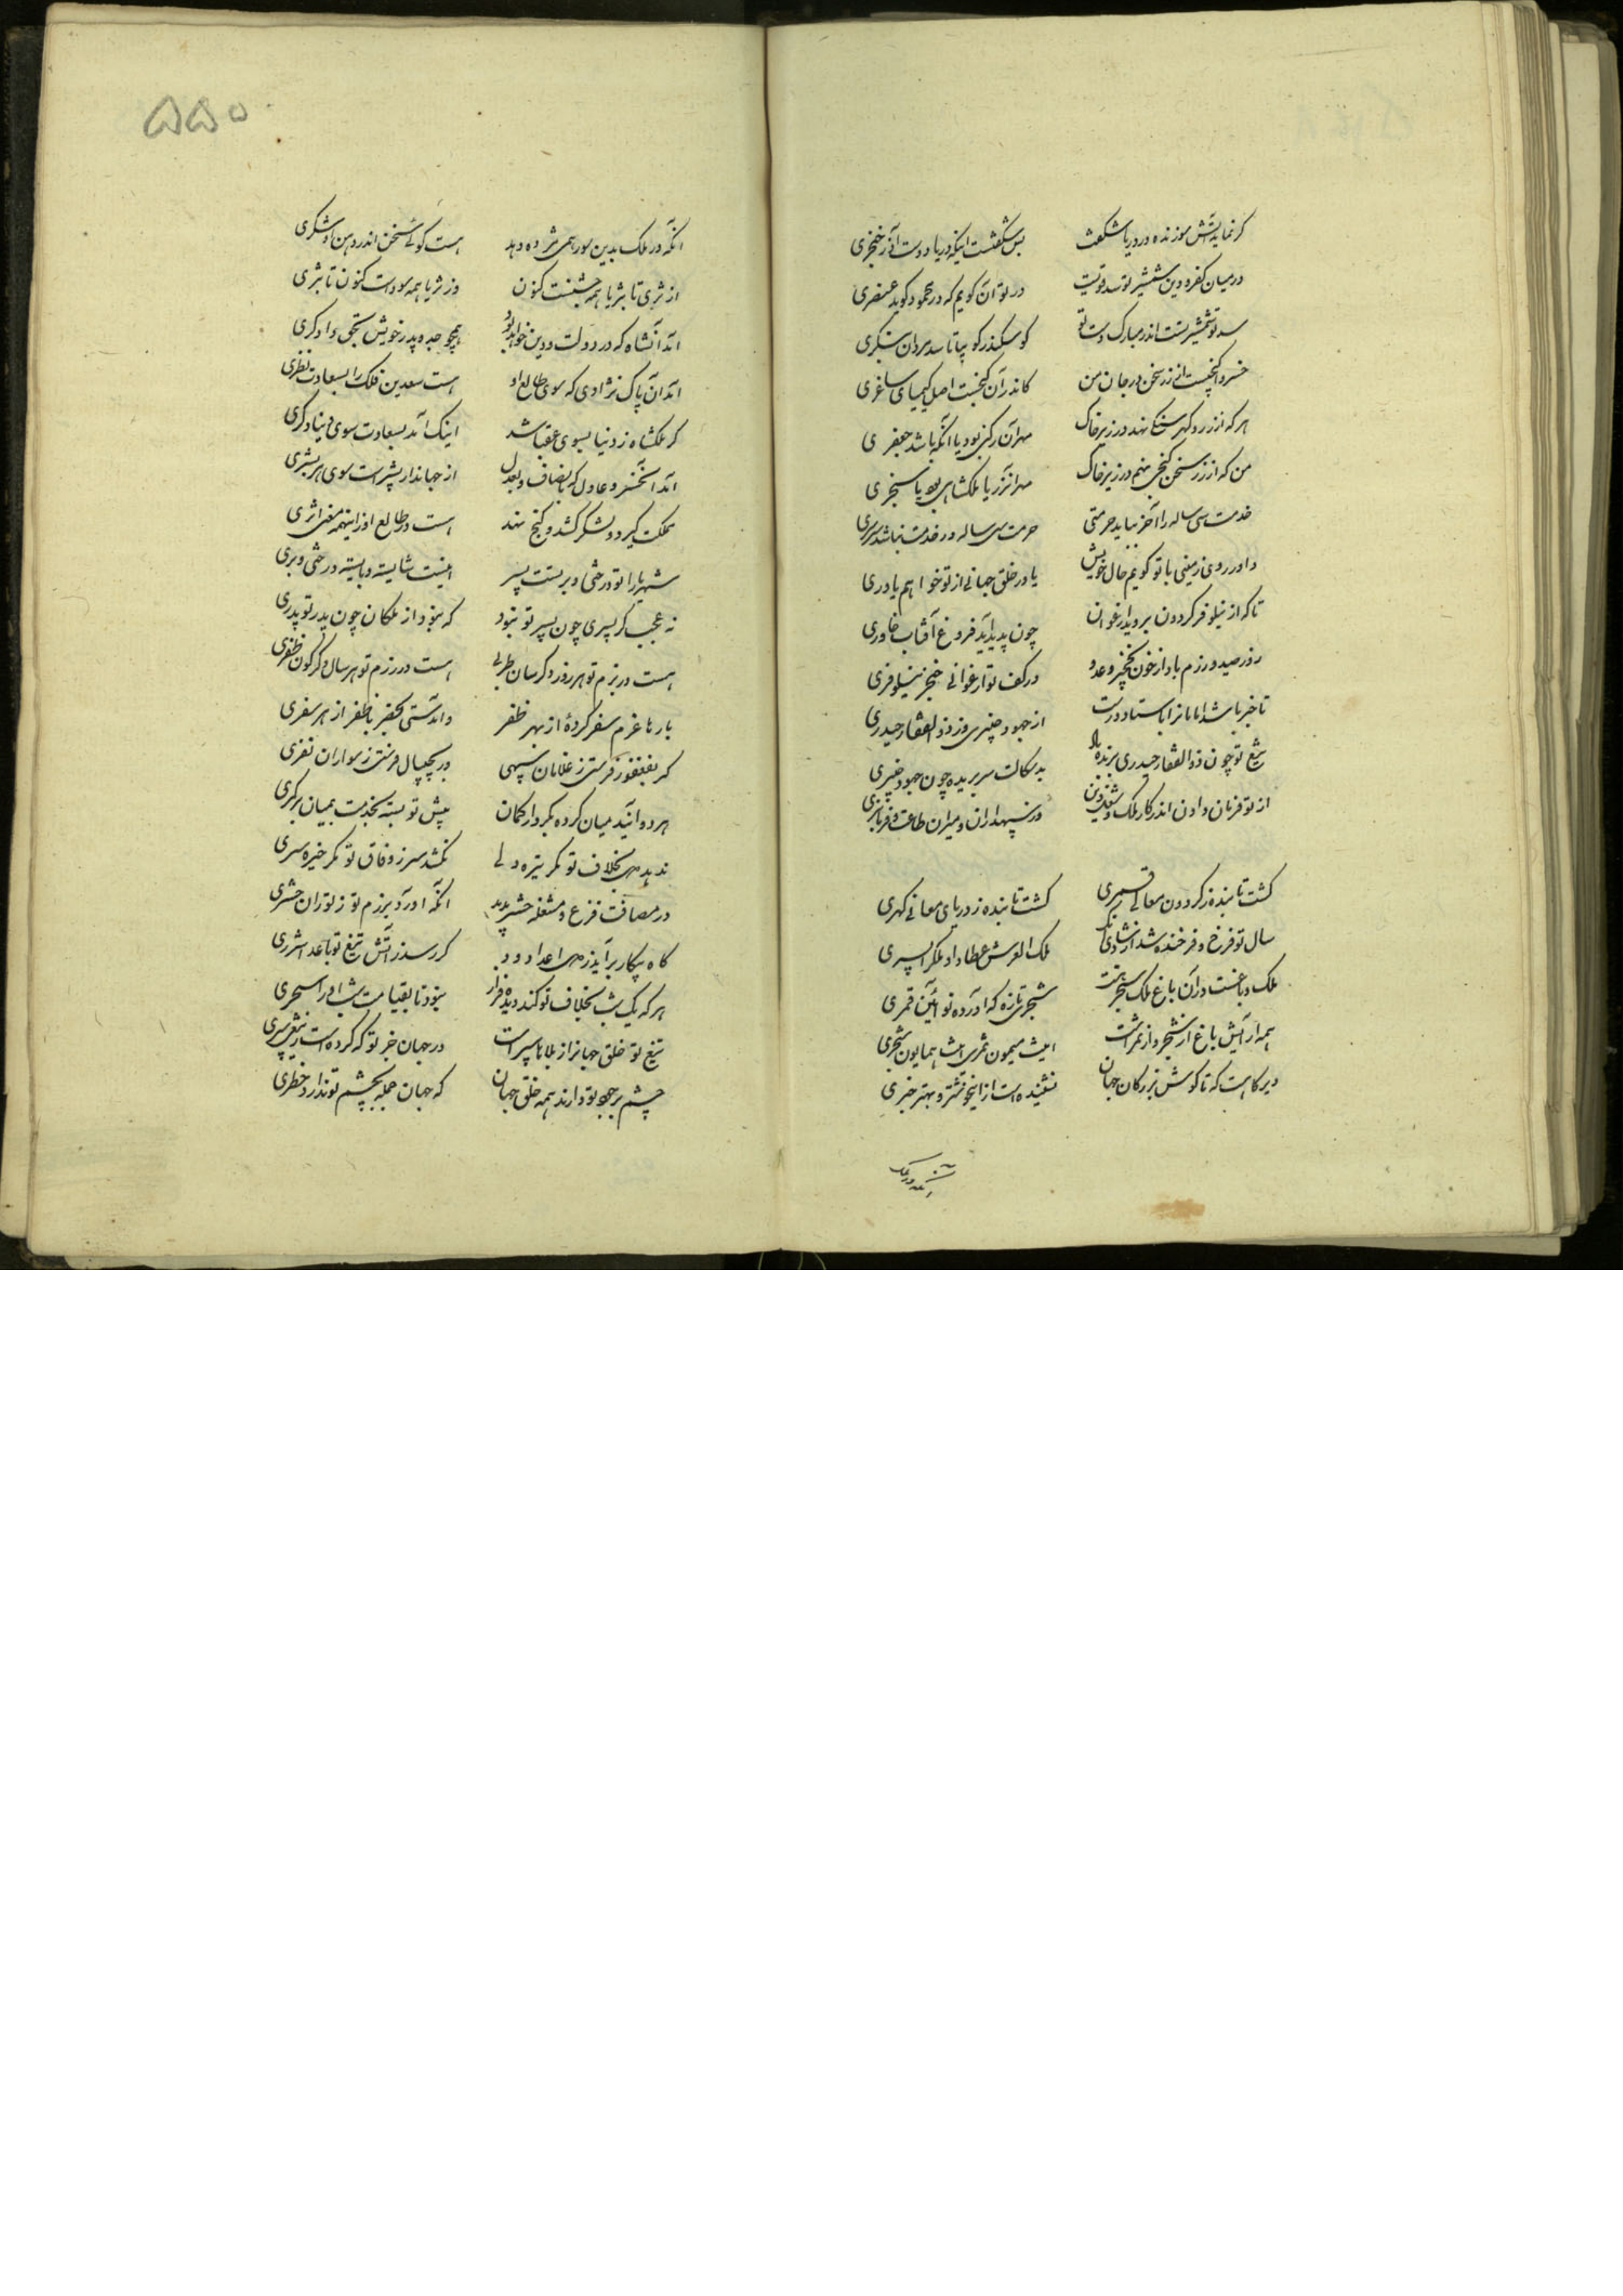 کر نماید آتش سوزنده در دریا شکفت بس شکفتست اینکه دریا دوست آذر خنجری
در میان کفر و دین شمشیر تو سد قویست در تو آن کویم که در محمود کوید عنصری
سد تو شمشیر تست اندر مبارک دست تو کو سکندر کو بیا تا سد مردان بنکری
خسروا کنجیست از زر سخن در جان من کاندر آن کنجست اصل کیمیای ساغری
هر که از زر و کهر کنجی نهد در زیر خاک مهر آن رکنی بود یا آنکه باشد جعفری
من که از زر سخن کنجی نهم در زیر خاک مهر آنزر یا ملکشاهی بود یا سنجری
خدمت سی ساله را آخر بباید حرمتی حرمت سی ساله در خدمت نباشد سرسری
داور روی زمینی با تو کویم حال خویش یاور خلق جهانی از تو خواهم یاوری
تا که از نیلوفر کردون بروید ارغوان چون پدید آید فروغ آفتاب خاوری
روز صید و رزم باد از خون نخچیر و عدو در کف تو ارغوانی خنجر نیلوفری
تا خبر باشد امامانرا باستاد درست از جهود خیبری وز ذوالفقار حیدری
تیغ تو چون ذوالفقار حیدری برنده باد بدسکالت سر بریده چون جهود خیبری
از تو فرمان دادن اندر کار ملک و شغل دین وز سپهداران و میران طاعت و فرمانبری
کشت تابنده ز کردون معالی قمری کشت تابنده ز دریای معانی کهری
سال تو فرخ و فرخنده شد از شادی آنک ملک العرش عطا داد ملکرا پسری
ملک و باغست در آن باغ ملک سنجر تخت شجری تازه که آورده نو آئین ثمری
همه آرایش باغ از شجر و از ثمر است اینت میمون ثمری اینت همایون شجری
دیر کاهست که تا کوش بزرکان جهان نشنیده است از این خوشتر و بهتر خبری
آنکه در ملک
۵۵۰
آنکه در ملک بدین سور همی مژده دهد هست کوئی سخن اندر دهن او شکری
از ثری تا بثریا همه جشنست کنون وز ثریا همه سور است کنون تا بثری
آمد آنشاه که در دولت و دین خواهد بود همچو جد و پدر خویش بحق دادکری
آمد آن پاک نژادی که سوی طالع او هست سعدین فلک را بسعادت نظری
کر ملکشاه ز دنیا بسوی عقبا شد اینک آمد بسعادت سوی دنیا دکری
آمد آنخسرو عادل که بانصاف و بعدل از جهاندار بشیر است سوی هر بشری
مملکت کیرد و لشکر کشد و کنج نهد هست در طالع او زاینهمه معنی اثری
شهریارا تو درختی و برتست پسر اینت شایسته و بایسته درختی و بری
نه عجب کر پسری چون پسر تو نبود که نبود از ملکان چون پدر تو پدری
هست در بزم تو هر روز دکرسان طربی هست در رزم تو هر سال دکرکون ظفری
بارها عزم سفر کردهٔ از بهر ظفر وامدستی بحضر با ظفر از هر سفری
کر بفغفور فرستی ز غلامان سپهی ور بجیپال فرستی ز سواران نفری
هر دو آیند میان کرده بکردار کمان پیش تو بسته بخدمت بمیان بر کمری
ندهد دل بخلاف تو مکر تیره دلی نکشد سر ز وفاق تو مکر خیره سری
در مصافت فزع و مشغله حشر پدید آنکه آورد برزم تو ز توران حشری
کاه پیکار برآید ز دل اعدا دود کر رسد ز آتش تیغ تو باعدا شرری
هر که یک شب بخلاف تو کند دیده فراز نبود تا بقیامت شب او را سحری
تیغ تو خلق جهانرا ز بلاها سپر است در جهان جز تو که کرده است ز تیغی سپری
چشم بر جود تو دارند همه خلق جهان که جهان جمله بچشم تو ندارد خطری